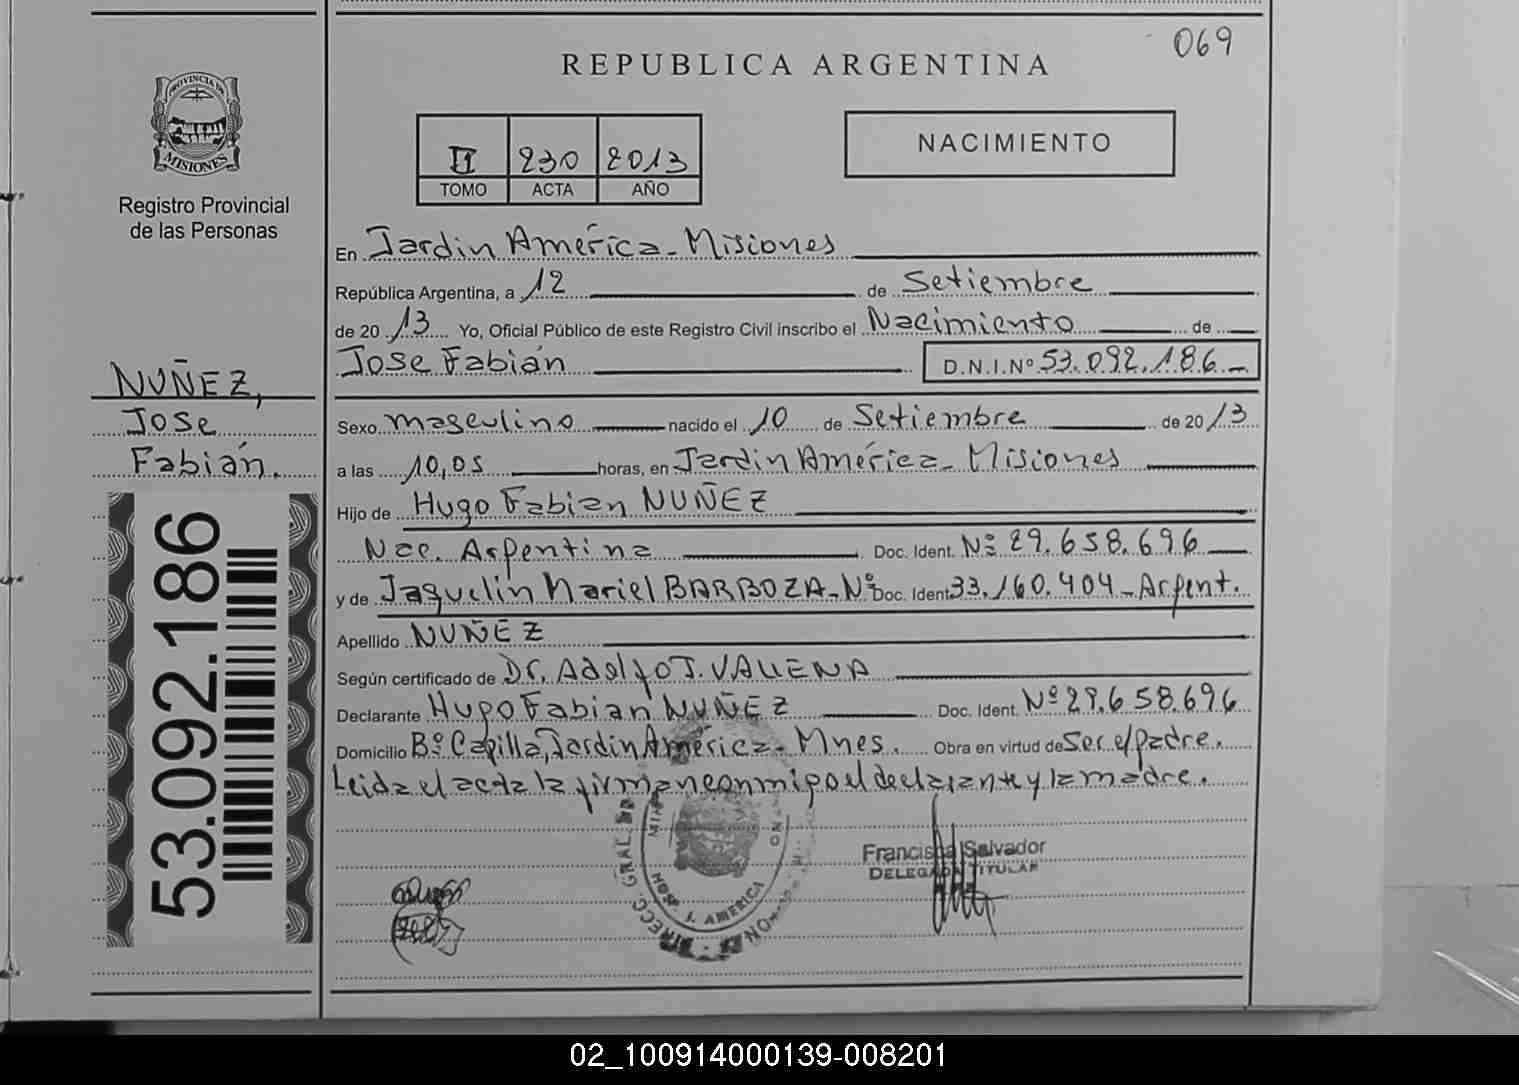 069
REPUBLICA ARGENTINA
PROVINCIA DE
MISIONES
Registro Provincial
de las Personas
II 230 2013
TOMO ACTA AÑO
NACIMIENTO
En Jardin América - Misiones
República Argentina, a 12 de Setiembre
de 2013 Yo, Oficial Público de este Registro Civil inscribo el Nacimiento de
Jose Fabián D.N.I.Nº 53.092.186 -
NUÑEZ,
Jose
Fabián.
Sexo masculino nacido el 10 de Setiembre de 2013
a las 10,05 horas, en Jardin América - Misiones
Hijo de Hugo Fabian NUÑEZ
Nac. Argentina Doc. Ident. Nº 29.658.696
y de Jaquelin Mariel BARBOZA - Nº Doc. Ident 33.160.404 - Argent.
Apellido NUÑEZ
Según certificado de Dr. Adolfo J. VALLENA
Declarante Hugo Fabian NUÑEZ Doc. Ident. Nº 29.658.696
Domicilio Bº Capilla, Jardin América - Mnes. Obra en virtud de Ser el padre.
Leida el acta la firman conmigo el declarante y la madre.
53.092.186
Francisca Salvador
DELEGADA TITULAR
DIRECC. GRAL. DE
HOSP. J. AMERICA
02_100914000139-008201